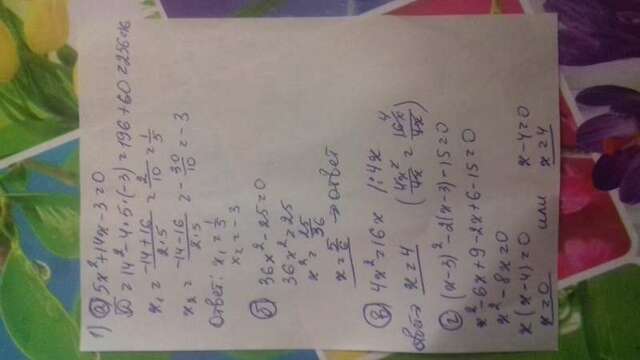 1) а) 5x²+14x-3=0
D=14²-4·5·(-3)=196+60=256=16
x₁=(-14+16)/(2·5)=2/10=1/5
x₂=(-14-16)/(2·5)=-30/10=-3
Ответ: x₁=1/5
x₂=-3
б) 36x²-25=0
36x²=25
x²=25/36
x=5/6 → ответ
в) 4x²=16x /:4x
ответ→ x=4 (4x²/4x=16x/4x) 4
г) (x-3)²-2(x-3)-15=0
x²-6x+9-2x+6-15=0
x²-8x=0
x(x-4)=0 x-4=0
x=0 или x=4